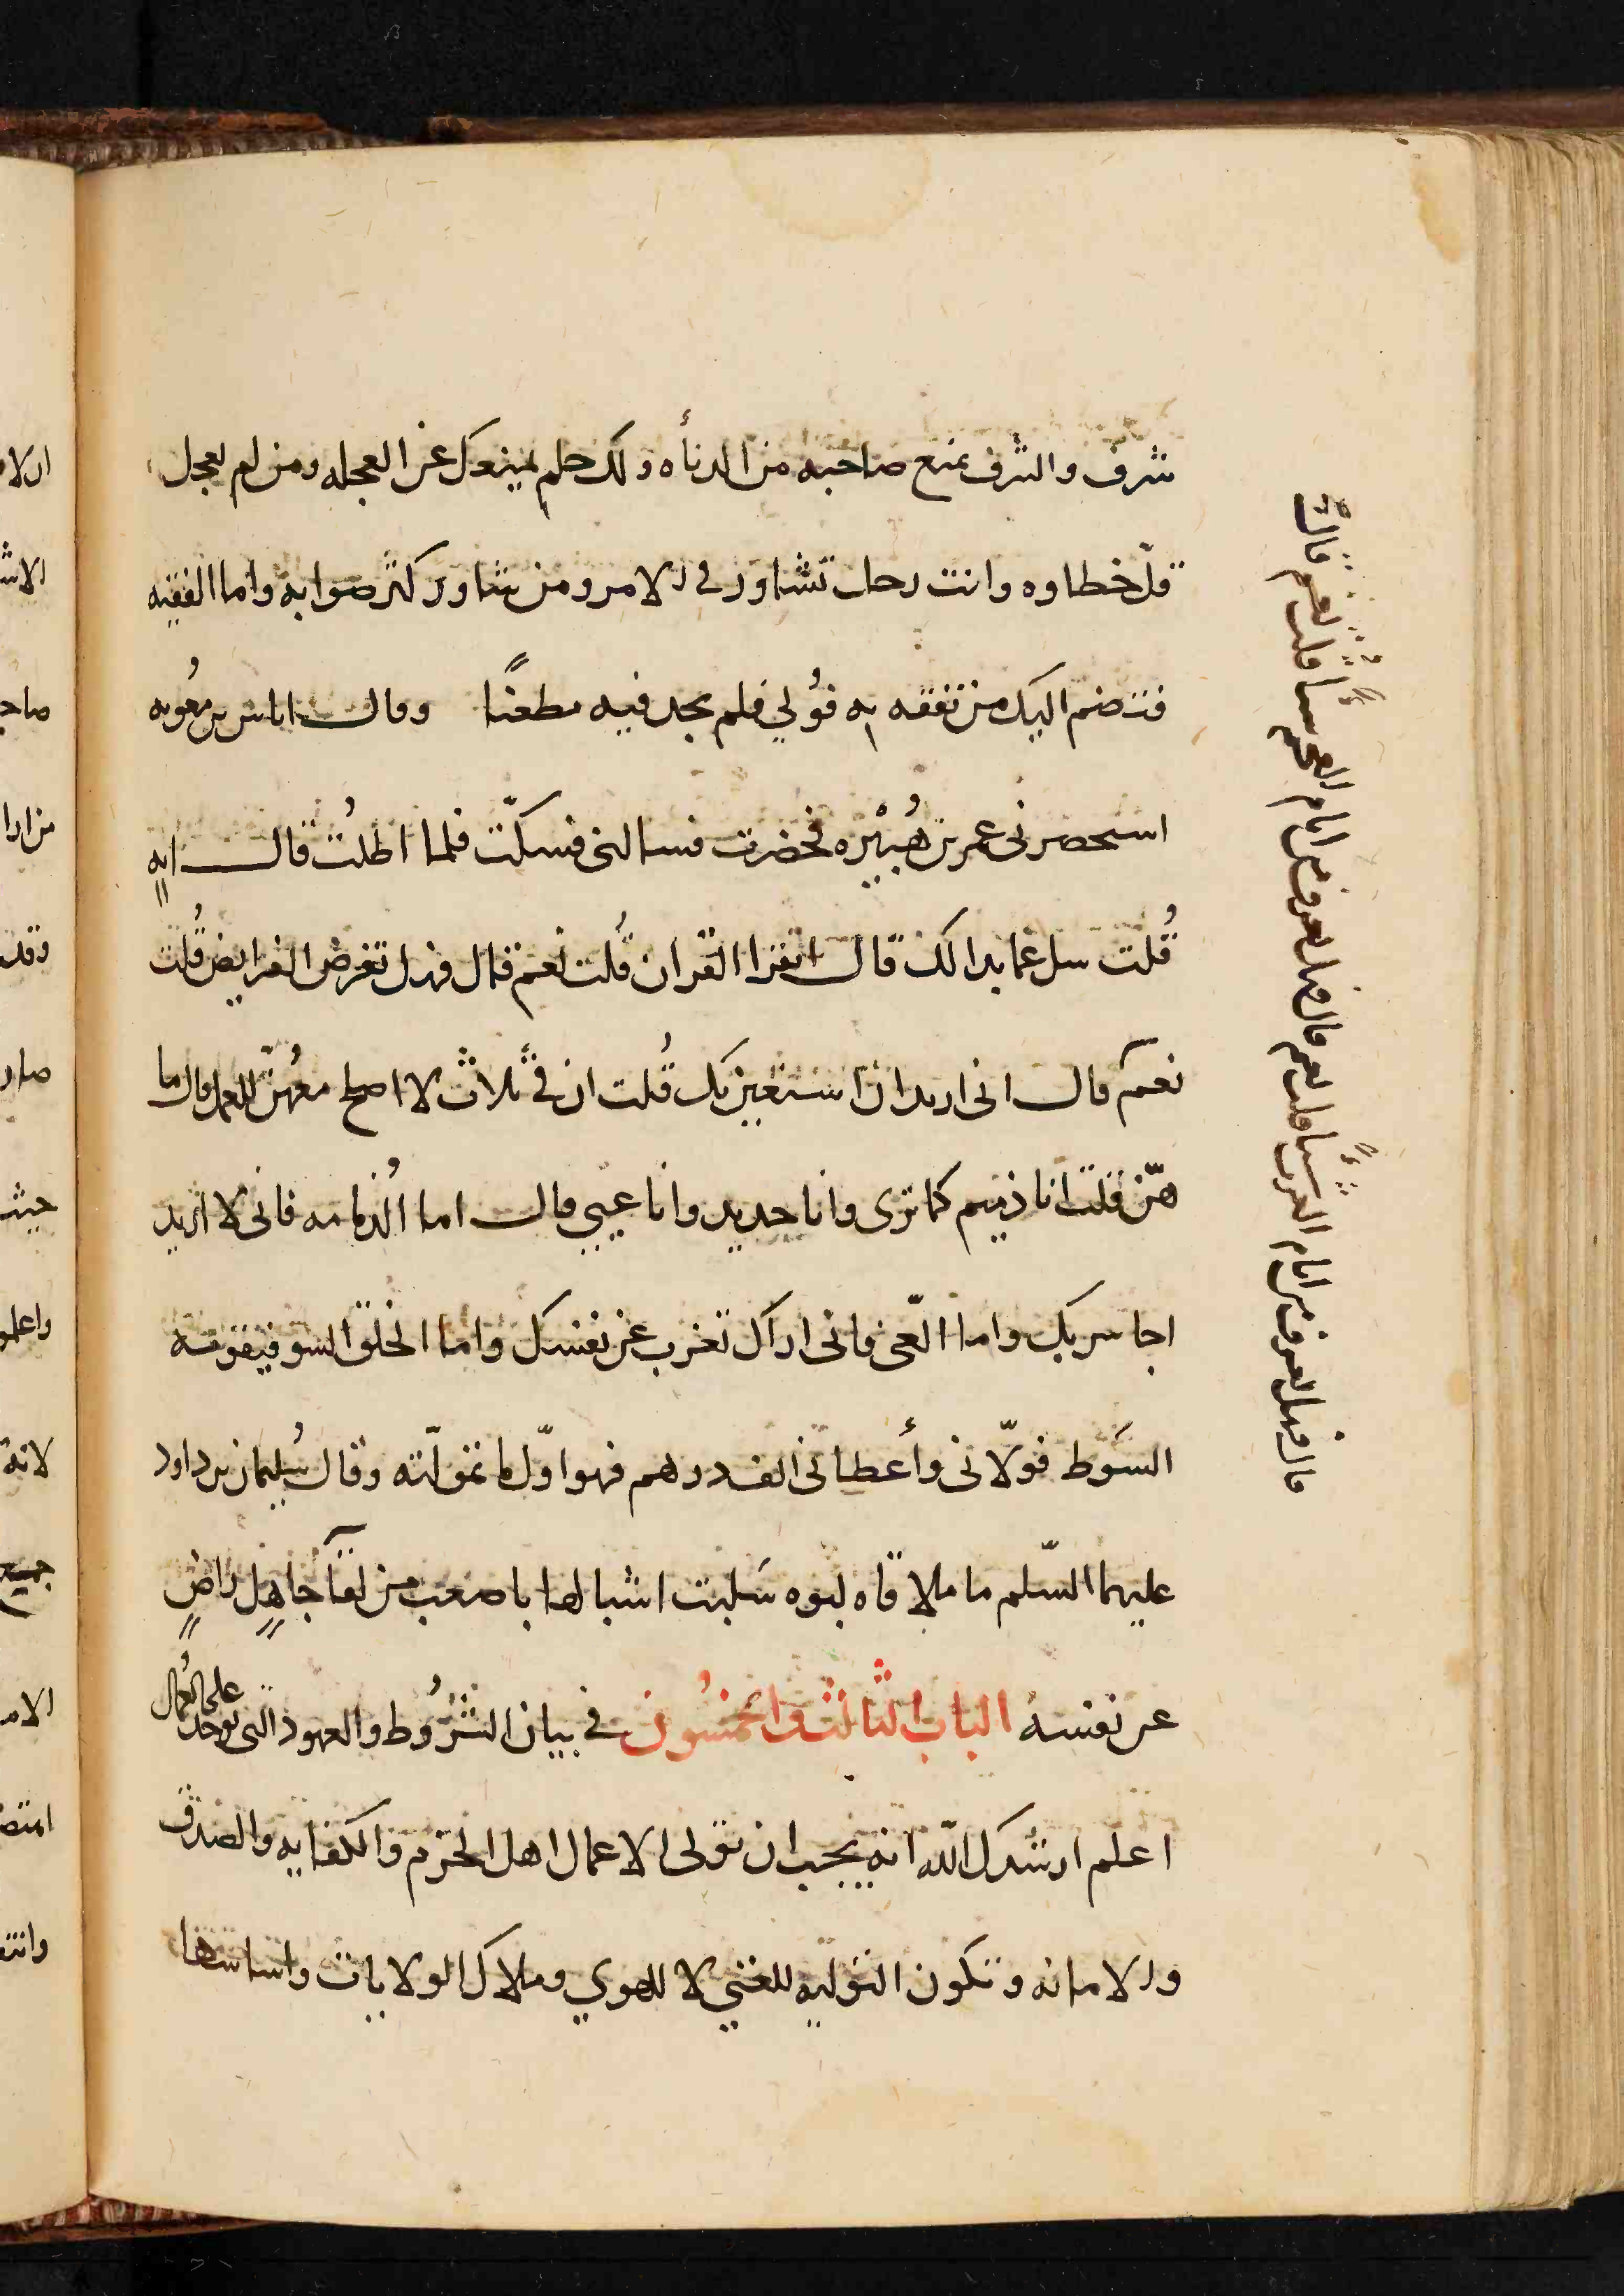 شرف والشرف يمنع صاحبه من الدنأه ولك حلم يمنعك عن العجله ومن لم يعجل
قلّ خطاوه وانت رجل تشاور في الامر ومن شاور كثر صوابه واما الفقيه
فسنضم اليك من تفقه به فوُلي فلم يجد فيه مطعنًا وقال اياس بن معُويه
استحضرنى عمر بن هُبَيْره فحضرت فسالنى فسكتّ فلما اطلُت قال ايهٍ
قُلت سل عما بدا لك قال اتقرا القران قُلت نعم قال فهل تفرض الفرايض قُلت
نعم قال انى اريد ان استعين بك قُلت ان فيَّ ثلاث لا اصلح معهُنّ للعمل قال ما
هنّ قلت انا ذميم كما ترى وانا حديد وانا عيي قال اما الُذمامه فانى لا اريد
احاسن بك واما العّى فانى اراك تعرب عن نفسك واما الخلق السو فيقومه
السَوط فولّانى وأعطانى الف درهم فهو اوّل ما تموّلته وقال سُليمان بن داود
عليهما السّلم ما ملاقاه لبوه سَلبت اشبالها باصعب من لقآ جاهلٍ راضٍ
عن نفسه الباب الثالث والخمسُون في بيان الشرُوط والعهود التى توخذ
على العُمال
اعلم ارشدك الله انه يجب ان تولى الاعمال اهل الحزم والكفايه والصدق
والامانه وتكون التوليه للغنى لا للهوي وملاك الولايات واساسها
قال فهل تعرف من ايام العرب شيأً قلت نعم قال فهل تعرف من ايام العجم شيأً قلت نعم قال